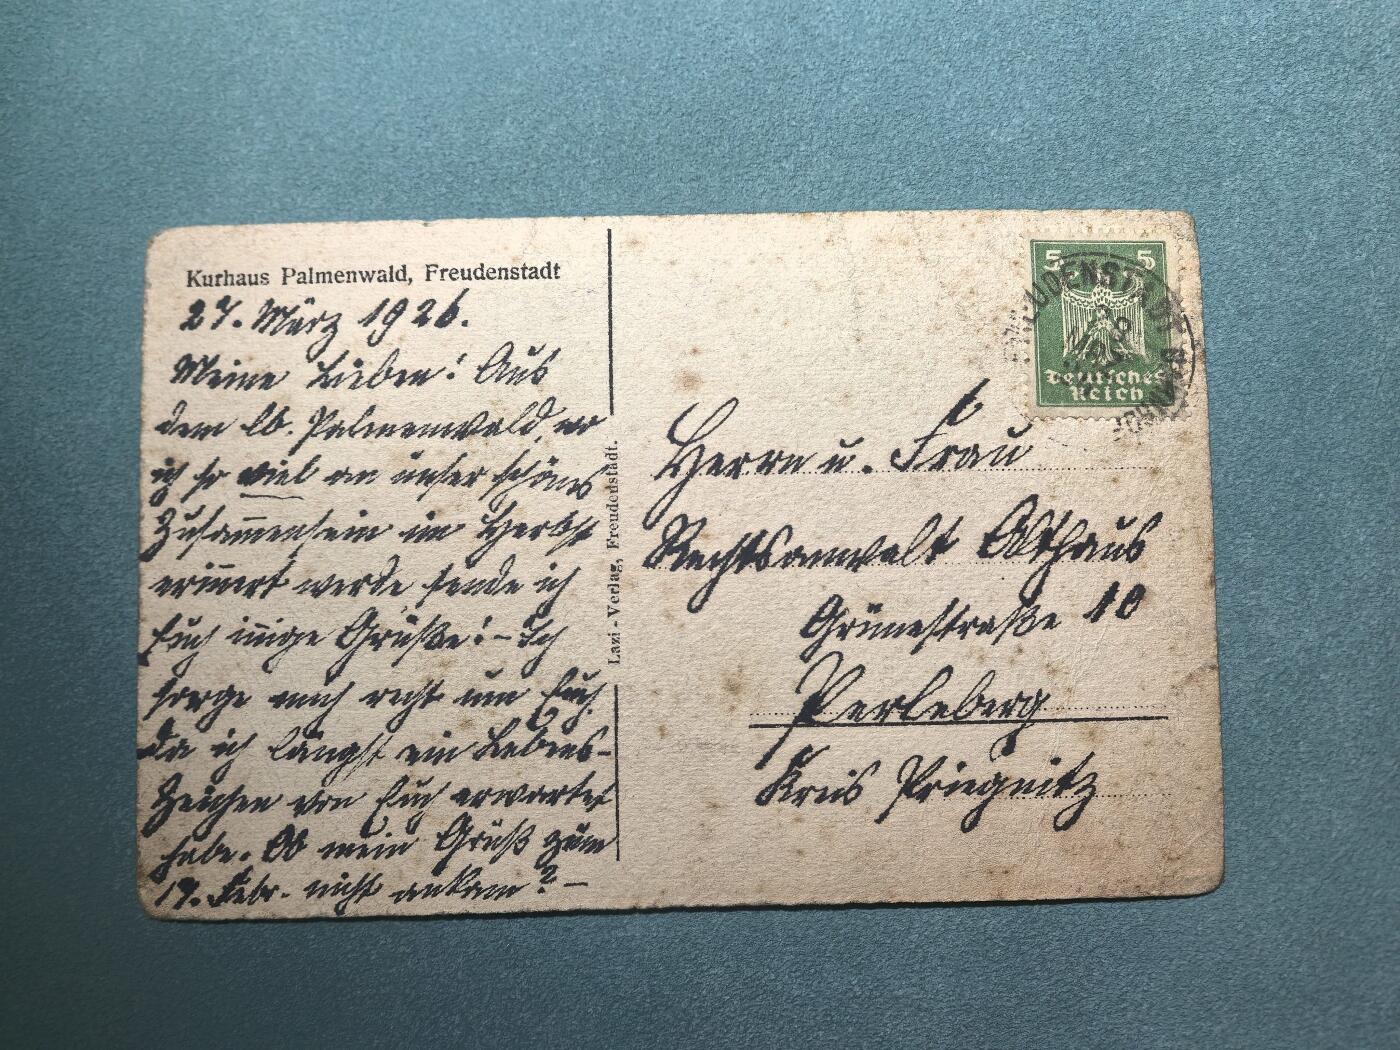 Kurhaus Palmenwald, Freudenstadt
27. März 1926.
Meine Lieben! Aus
dem lb. Palmenwald, wo
ich so viel an unser schönes
Zusammensein im Herbst
erinnert werde sende ich
Euch innige Grüße! – Ich
sorge mich recht um Euch,
da ich längst ein Lebens-
Zeichen von Euch erwartet
habe. Ob mein Gruß zum
17. Febr. nicht ankam? –
Lazi-Verlag, Freudenstadt.
5 5
Deutsches
Reich
FREUDENSTADT
Herrn u. Frau
Rechtsanwalt Althaus
Grünestraße 10
Perleberg
Kreis Priegnitz